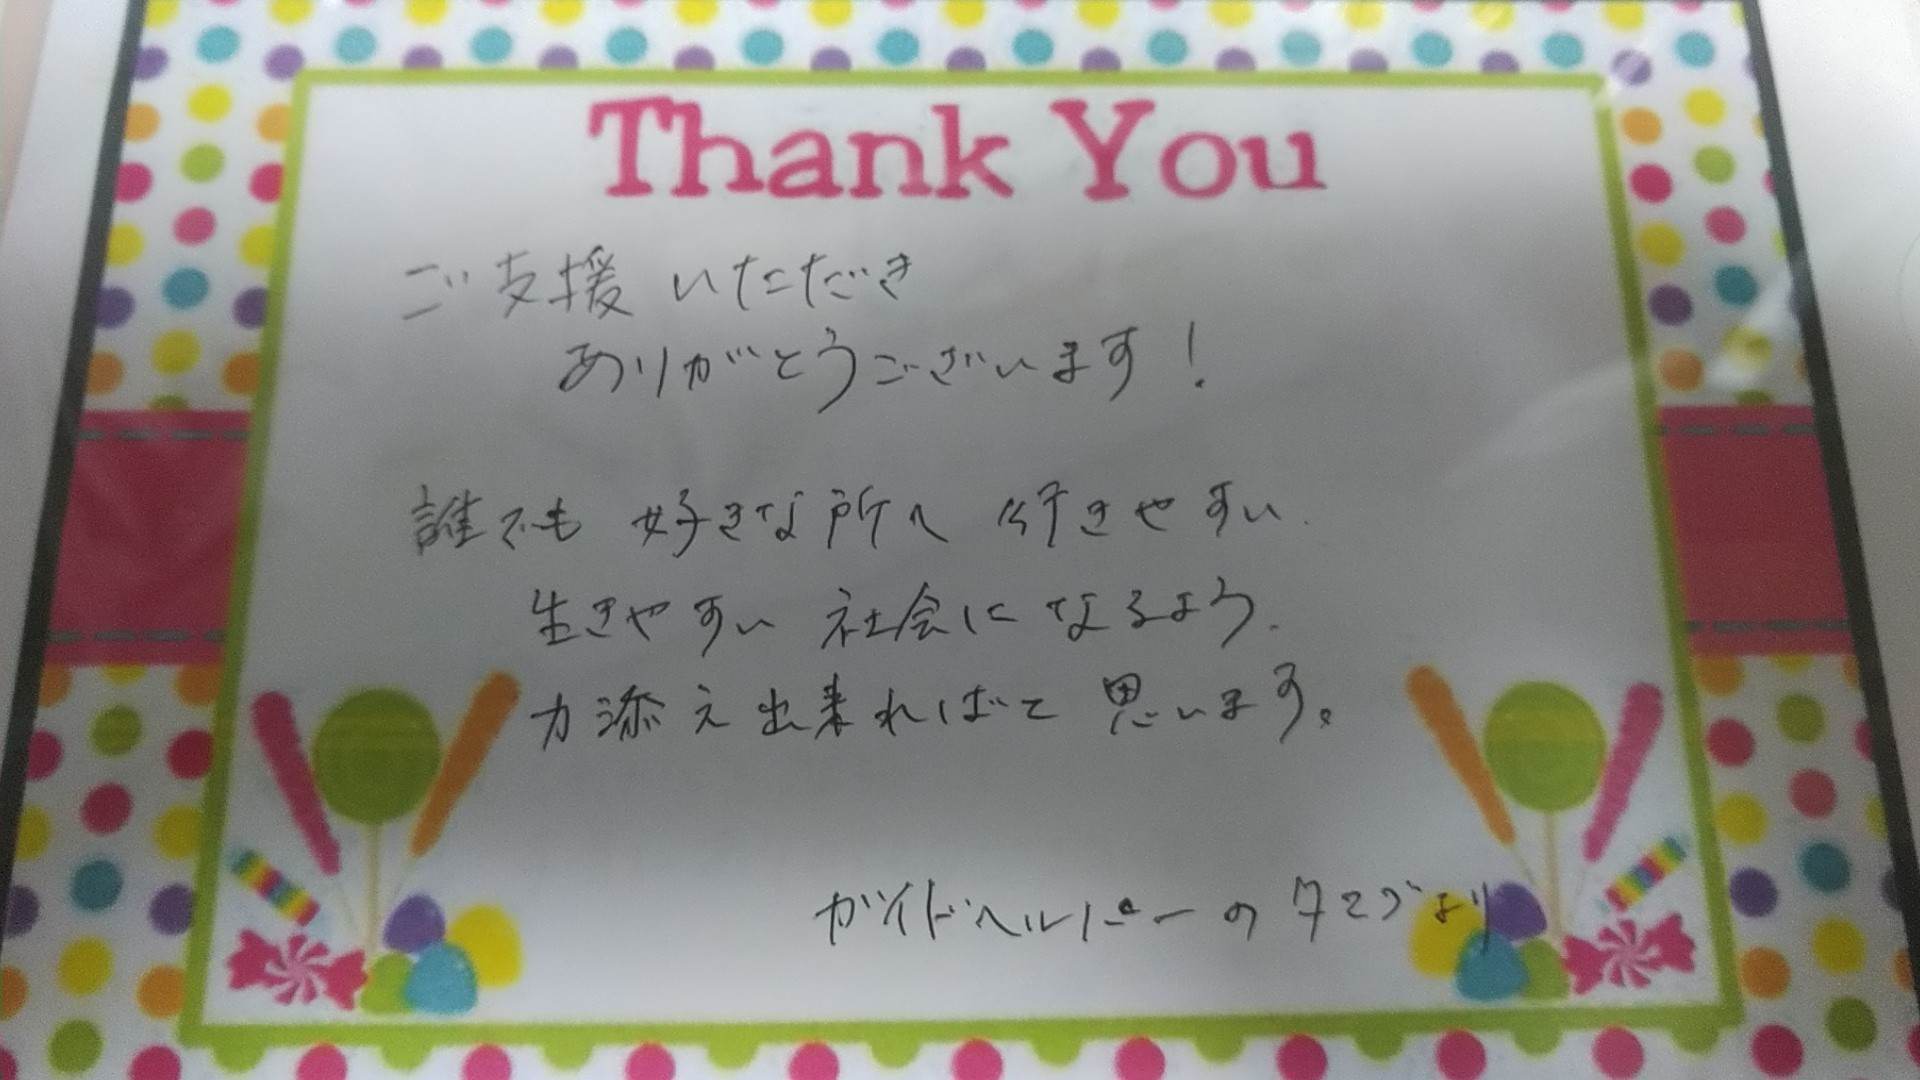 Thank You
ご支援いただき
ありがとうございます!
誰でも 好きな所へ 行きやすい
生きやすい 社会になるよう
力添え出来ればと思います。
ガイドヘルパーの より